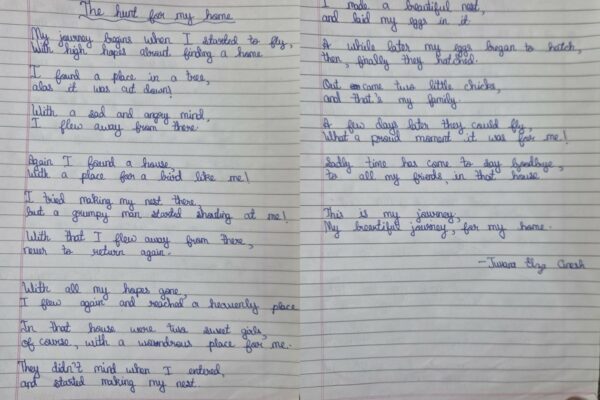 The hunt for my home
My journey begins when I started to fly,
With high hopes about finding a home
I found a place in a tree,
alas it was cut down!
With a sad and angry mind,
I flew away from there.
Again I found a house,
With a place for a bird like me!
I tried making my nest there,
but a grumpy man started shouting at me!
With that I flew away from there,
never to return again.
With all my hopes gone,
I flew again and reached a heavenly place
In that house were two sweet girls,
of course, with a wondrous place for me.
They didn't mind when I entered,
and started making my nest.
I made a beautiful nest,
and laid my eggs in it.
A while later my eggs began to hatch,
then, finally they hatched.
Out came two little chicks,
and that's my family.
A few days later they could fly,
What a proud moment it was for me!
Sadly time has come to say goodbye,
to all my friends, in that house
This is my journey,
My beautiful journey, for my home.